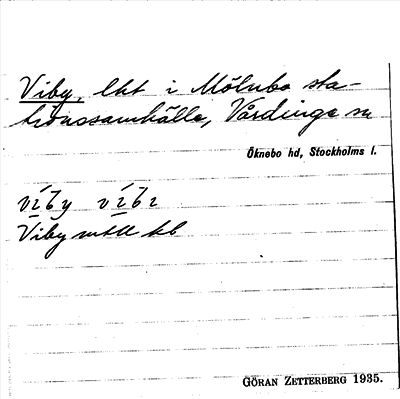 Viby, lht i Mölnbo sta-
tionssamhälle, Vårdinge sn
Öknebo hd, Stockholms l.
Viby
GÖRAN ZETTERBERG 1935.